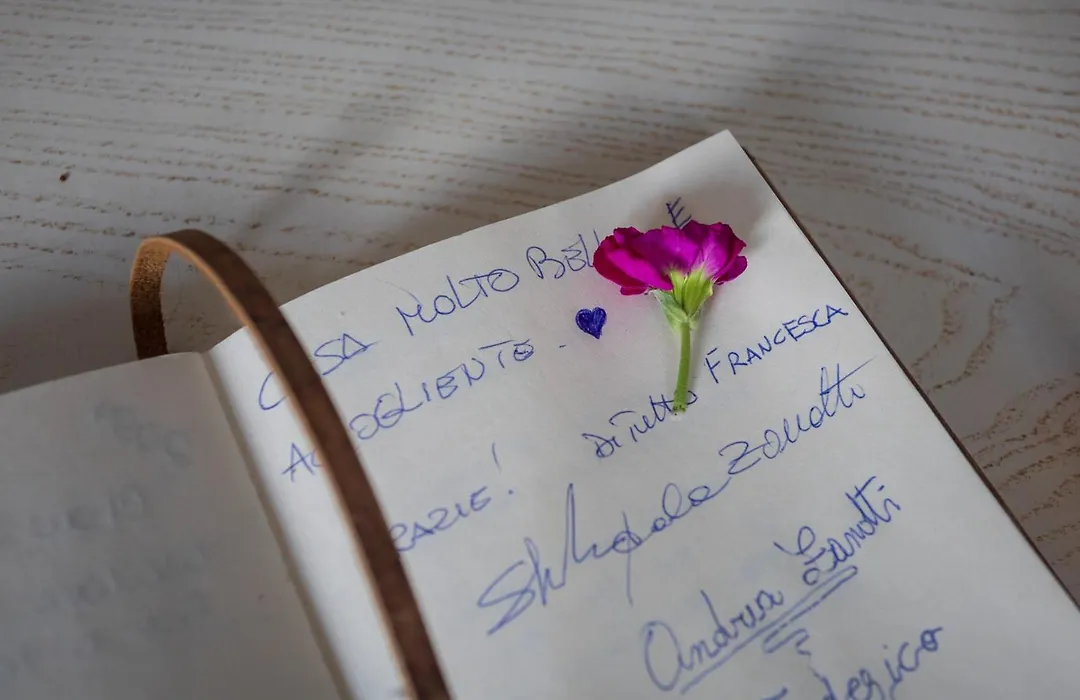 CASA MOLTO BELLA E
ACCOGLIENTE. ♥
GRAZIE!
Di Tutto FRANCESCA
Zanotto
Andrea Zanotti
Federico